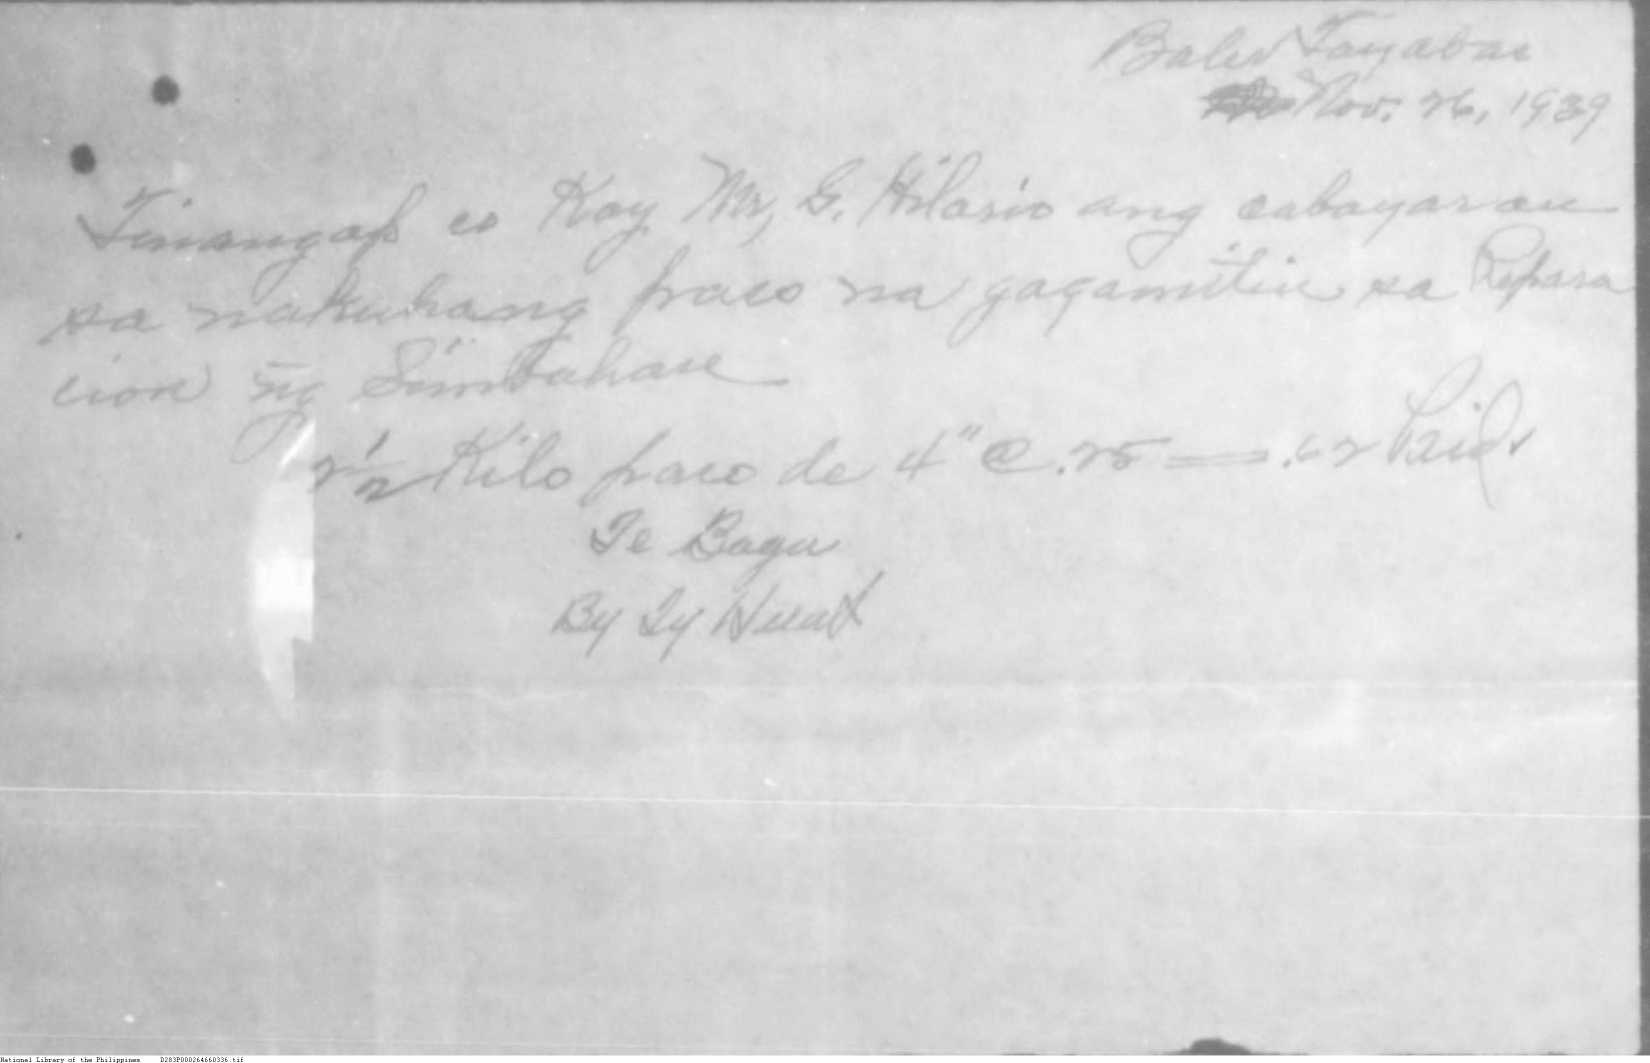 Baler Tayabas
Nov. 26, 1939
Tinangap co Kay Mr, G. Hilario ang cabayaran
sa nakuhang paco na gagamitin sa Repara
cion ng̃ Simbahan
2 1/2 Kilo paco de 4" @ .25 = .62 Paid
Te Bagu
By Ty Huat
National Library of the Philippines D283P000264660336.tif